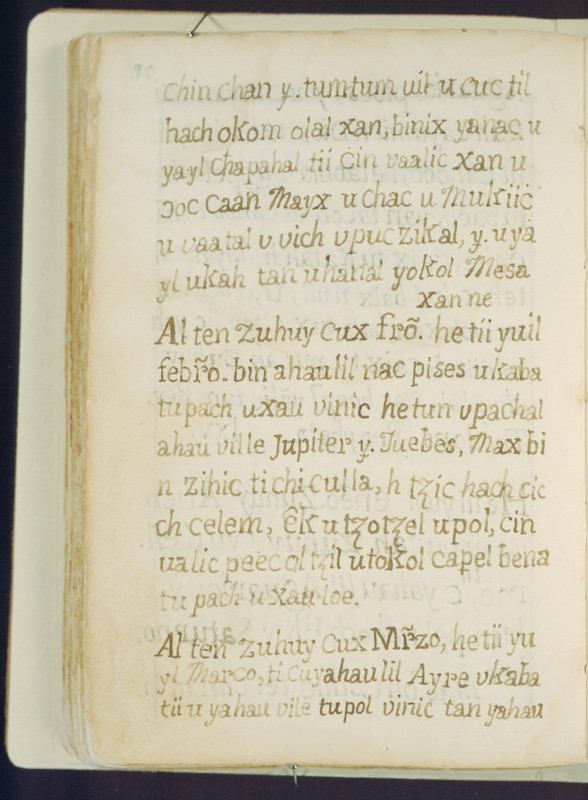 90
chin chan y. tumtum uil u cuc til
hach okom olal xan, binix yanac u
yayl chapahal tii Cin vaalic Xan u
ɔoc Caan Mayx u chac u Mukiic
u vaatal v vich v puczikal, y. u ya
yl ukah tan uhanal yokol Mesa
xan ne
Al ten Zuhuy Cux frõ. he tii yuil
febr̃o. bin ahaulil nac pises u kaba
tu pach uxau vinic he tun v pachal
ahau vil le Jupiter y. Juebes, Max bi
n zihic ti chi culla, h tzic hach cic
ch celem, Ek u tzotzel u pol, cin
ualic peec ol tzil u tokol capel bena
tu pach u xau loe.
Al ten Zuhuy Cux Mr̃zo, he tii yu
yl Marco, ti cuyahaulil Ayre v kaba
tii u yahau vile tu pol vinic tan yahau